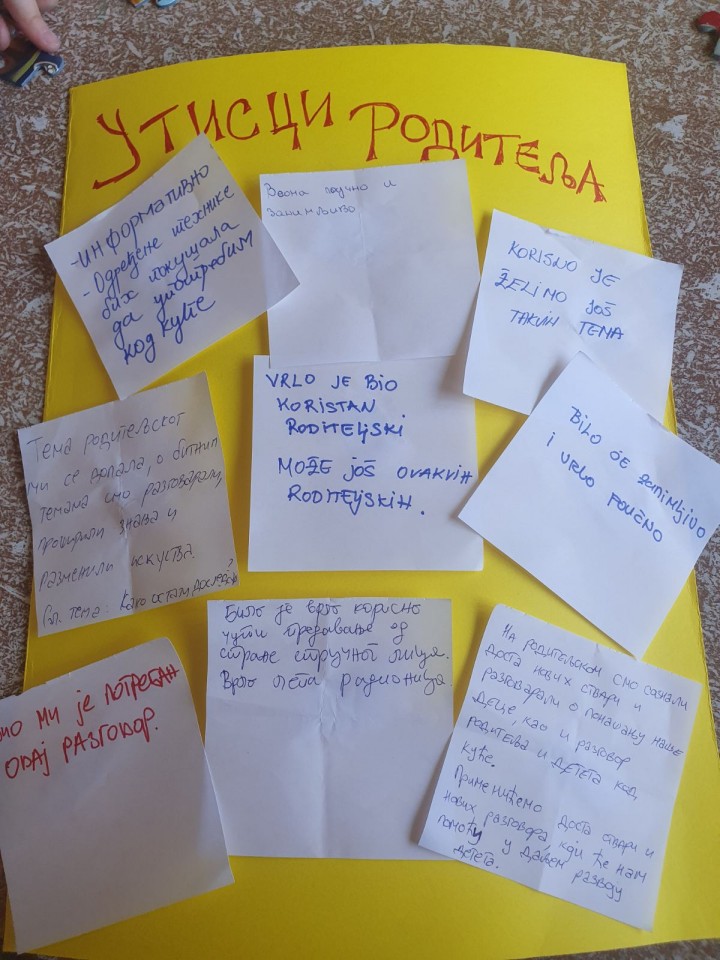 УТИСЦИ РОДИТЕЉА
-ИНФОРМАТИВНО
- Одређене технике
бих покушала
да употребим
код куће
Веома поучно и
занимљиво
KORISNO JE
ŽELIMO JOŠ
TAKVIH TEMA
Тема родитељског
ми се допала, о битним
темама смо разговарали,
проширили знања и
разменили искуства.
Сл. тема: Како остати доследан?
VRLO JE BIO
KORISTAN
RODITELJSKI
MOŽE JOŠ OVAKVIH
RODITELJSKIH.
BILO JE ZANIMLJIVO
I VRLO POUČNO
МИ ЈЕ ПОТРЕБАН
ОВАЈ РАЗГОВОР.
Било је врло корисно
чути предавање од
стране стручног лица.
Врло лепа радионица
НА РОДИТЕЉСКОМ СМО САЗНАЛИ
ДОСТА НОВИХ СТВАРИ И
РАЗГОВАРАЛИ О ПОНАШАЊУ НАШЕ
ДЕЦЕ, КАО И РАЗГОВОР
РОДИТЕЉА И ДЕТЕТА КОД
КУЋЕ.
ПРИМЕНИЋЕМО ДОСТА СТВАРИ И
НОВИХ РАЗГОВОРА, КОЈИ ЋЕ НАМ
ПОМОЋИ У ДАЉЕМ РАЗВОЈУ
ДЕТЕТА.